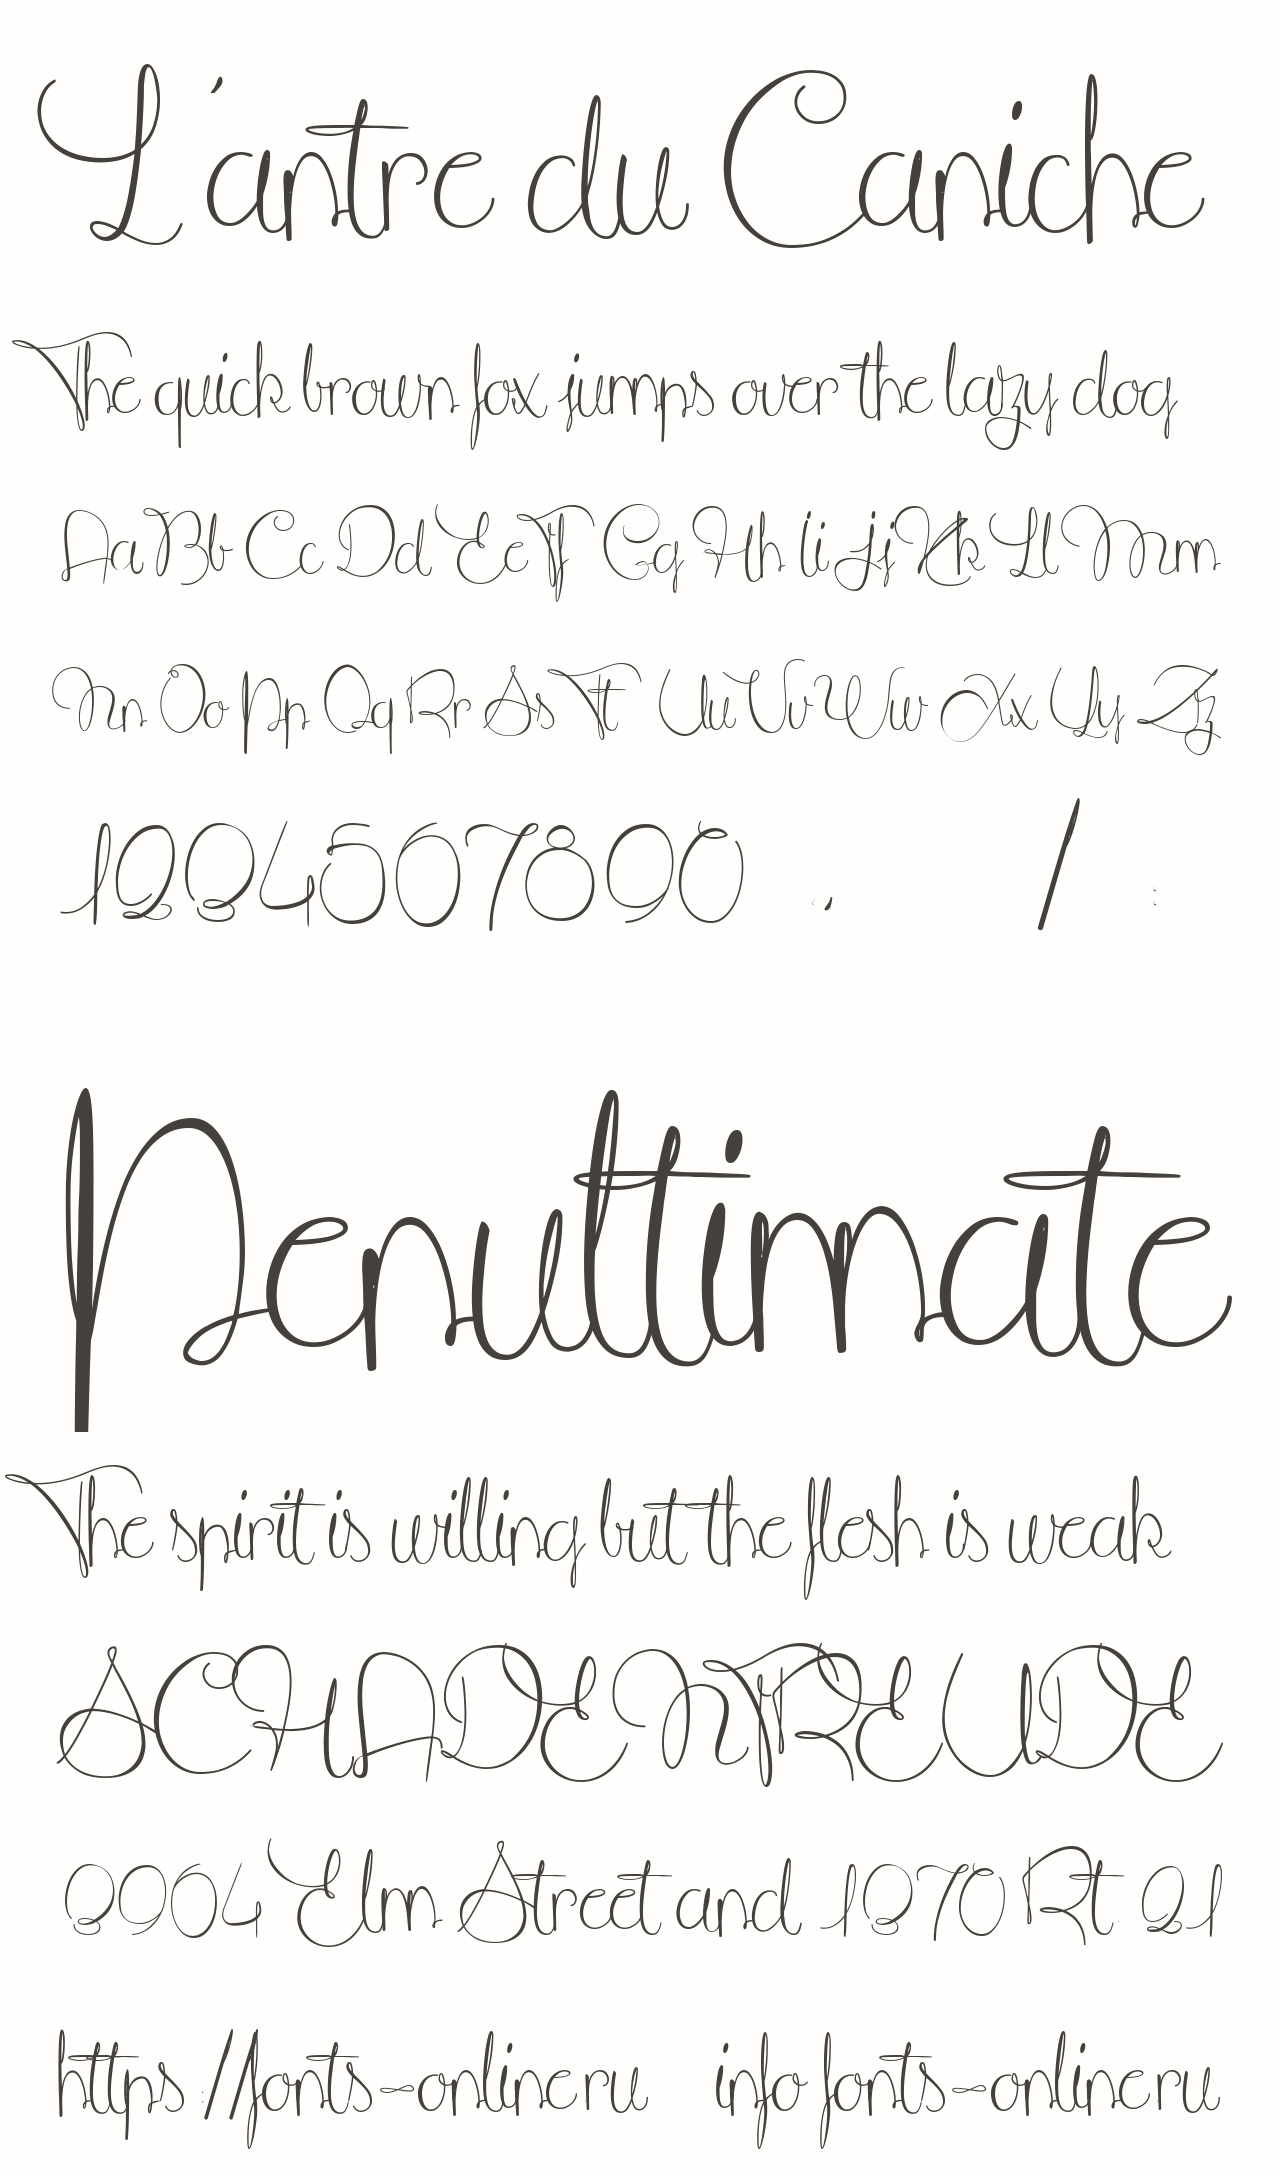 L'antre du Caniche
The quick brown fox jumps over the lazy dog
Aa Bb Cc Dd Ee Ff Gg Hh Ii Jj Kk Ll Mm
Nn Oo Pp Qq Rr Ss Tt Uu Vv Ww Xx Yy Zz
1234567890 . , / :
Penultimate
The spirit is willing but the flesh is weak
SCHADENFREUDE
3964 Elm Street and 1370 Rt. 21
https://fonts-online.ru info fonts-online.ru